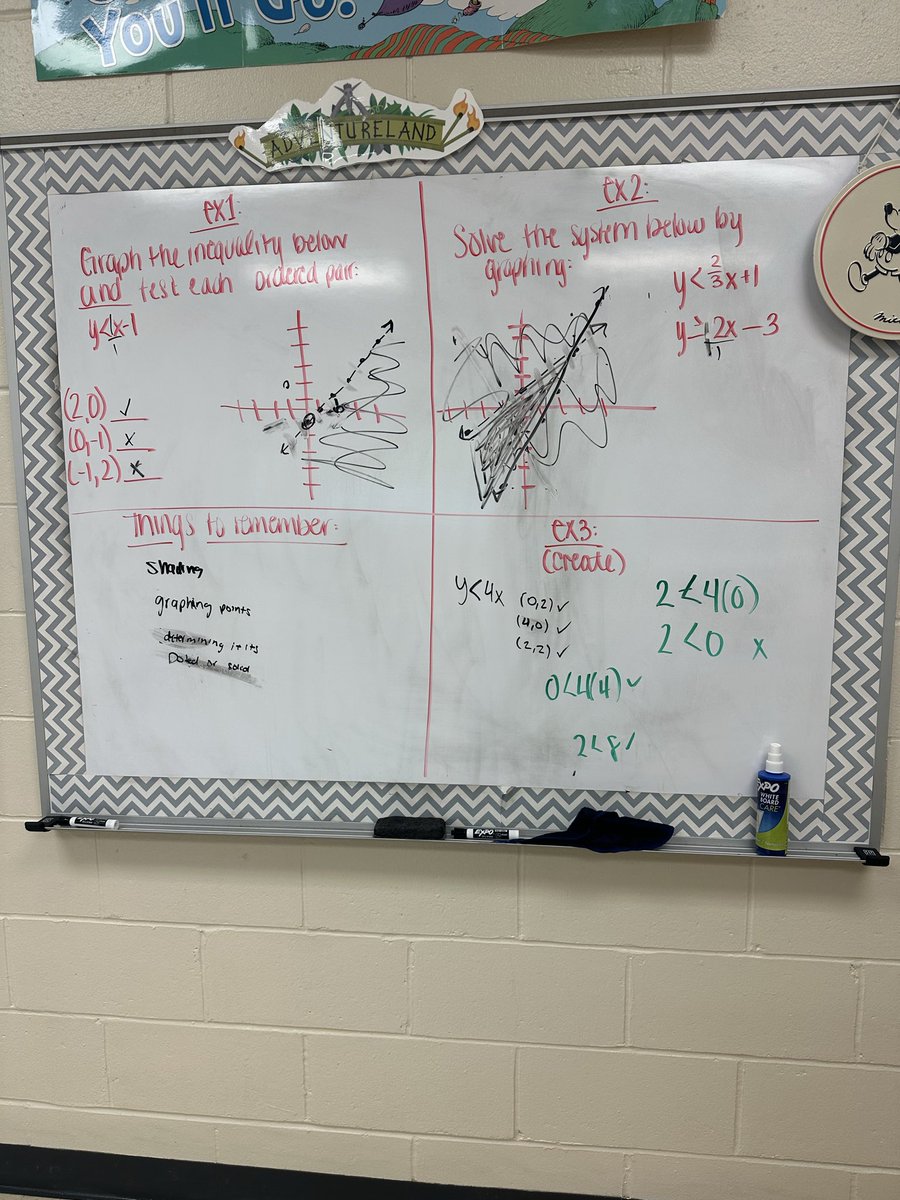 You'll Go!
ADVENTURELAND
ex1:
Graph the inequality below
and test each ordered pair:
y<x-1
1
(2,0) ✓
(0,-1) x
(-1,2) x
ex2:
Solve the system below by
graphing:
y<2/3x+1
y≥2x-3
1
Things to remember:
Shading
graphing points
determining if its
Doted or soled
ex3:
(create)
y<4x
(0,2) ✓
(4,0) ✓
(2,2) ✓
2<4(0)
2<0 x
0<4(4) ✓
2<8 ✓
EXPO
WHITE
BOARD
CARE
EXPO